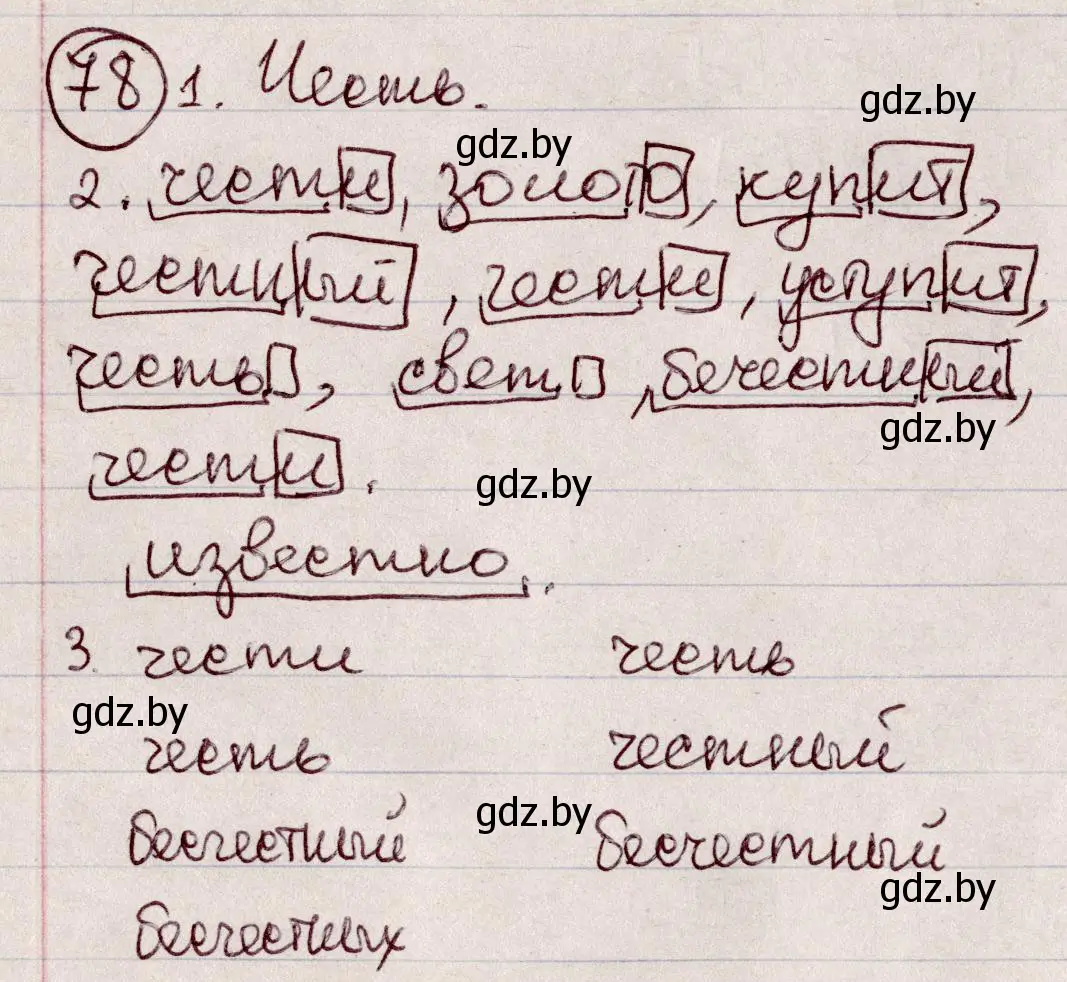 78 1. Честь.
gdz.by
gdz.by
2. чести, золото, купит,
честный, чести, уступит,
честь, свет, бечестный,
gdz.by
чести.
gdz.by
известно.
3. чести честь
gdz.by
честь честный
gdz.by
бесчестный бесчестный
gdz.by
бесчестных